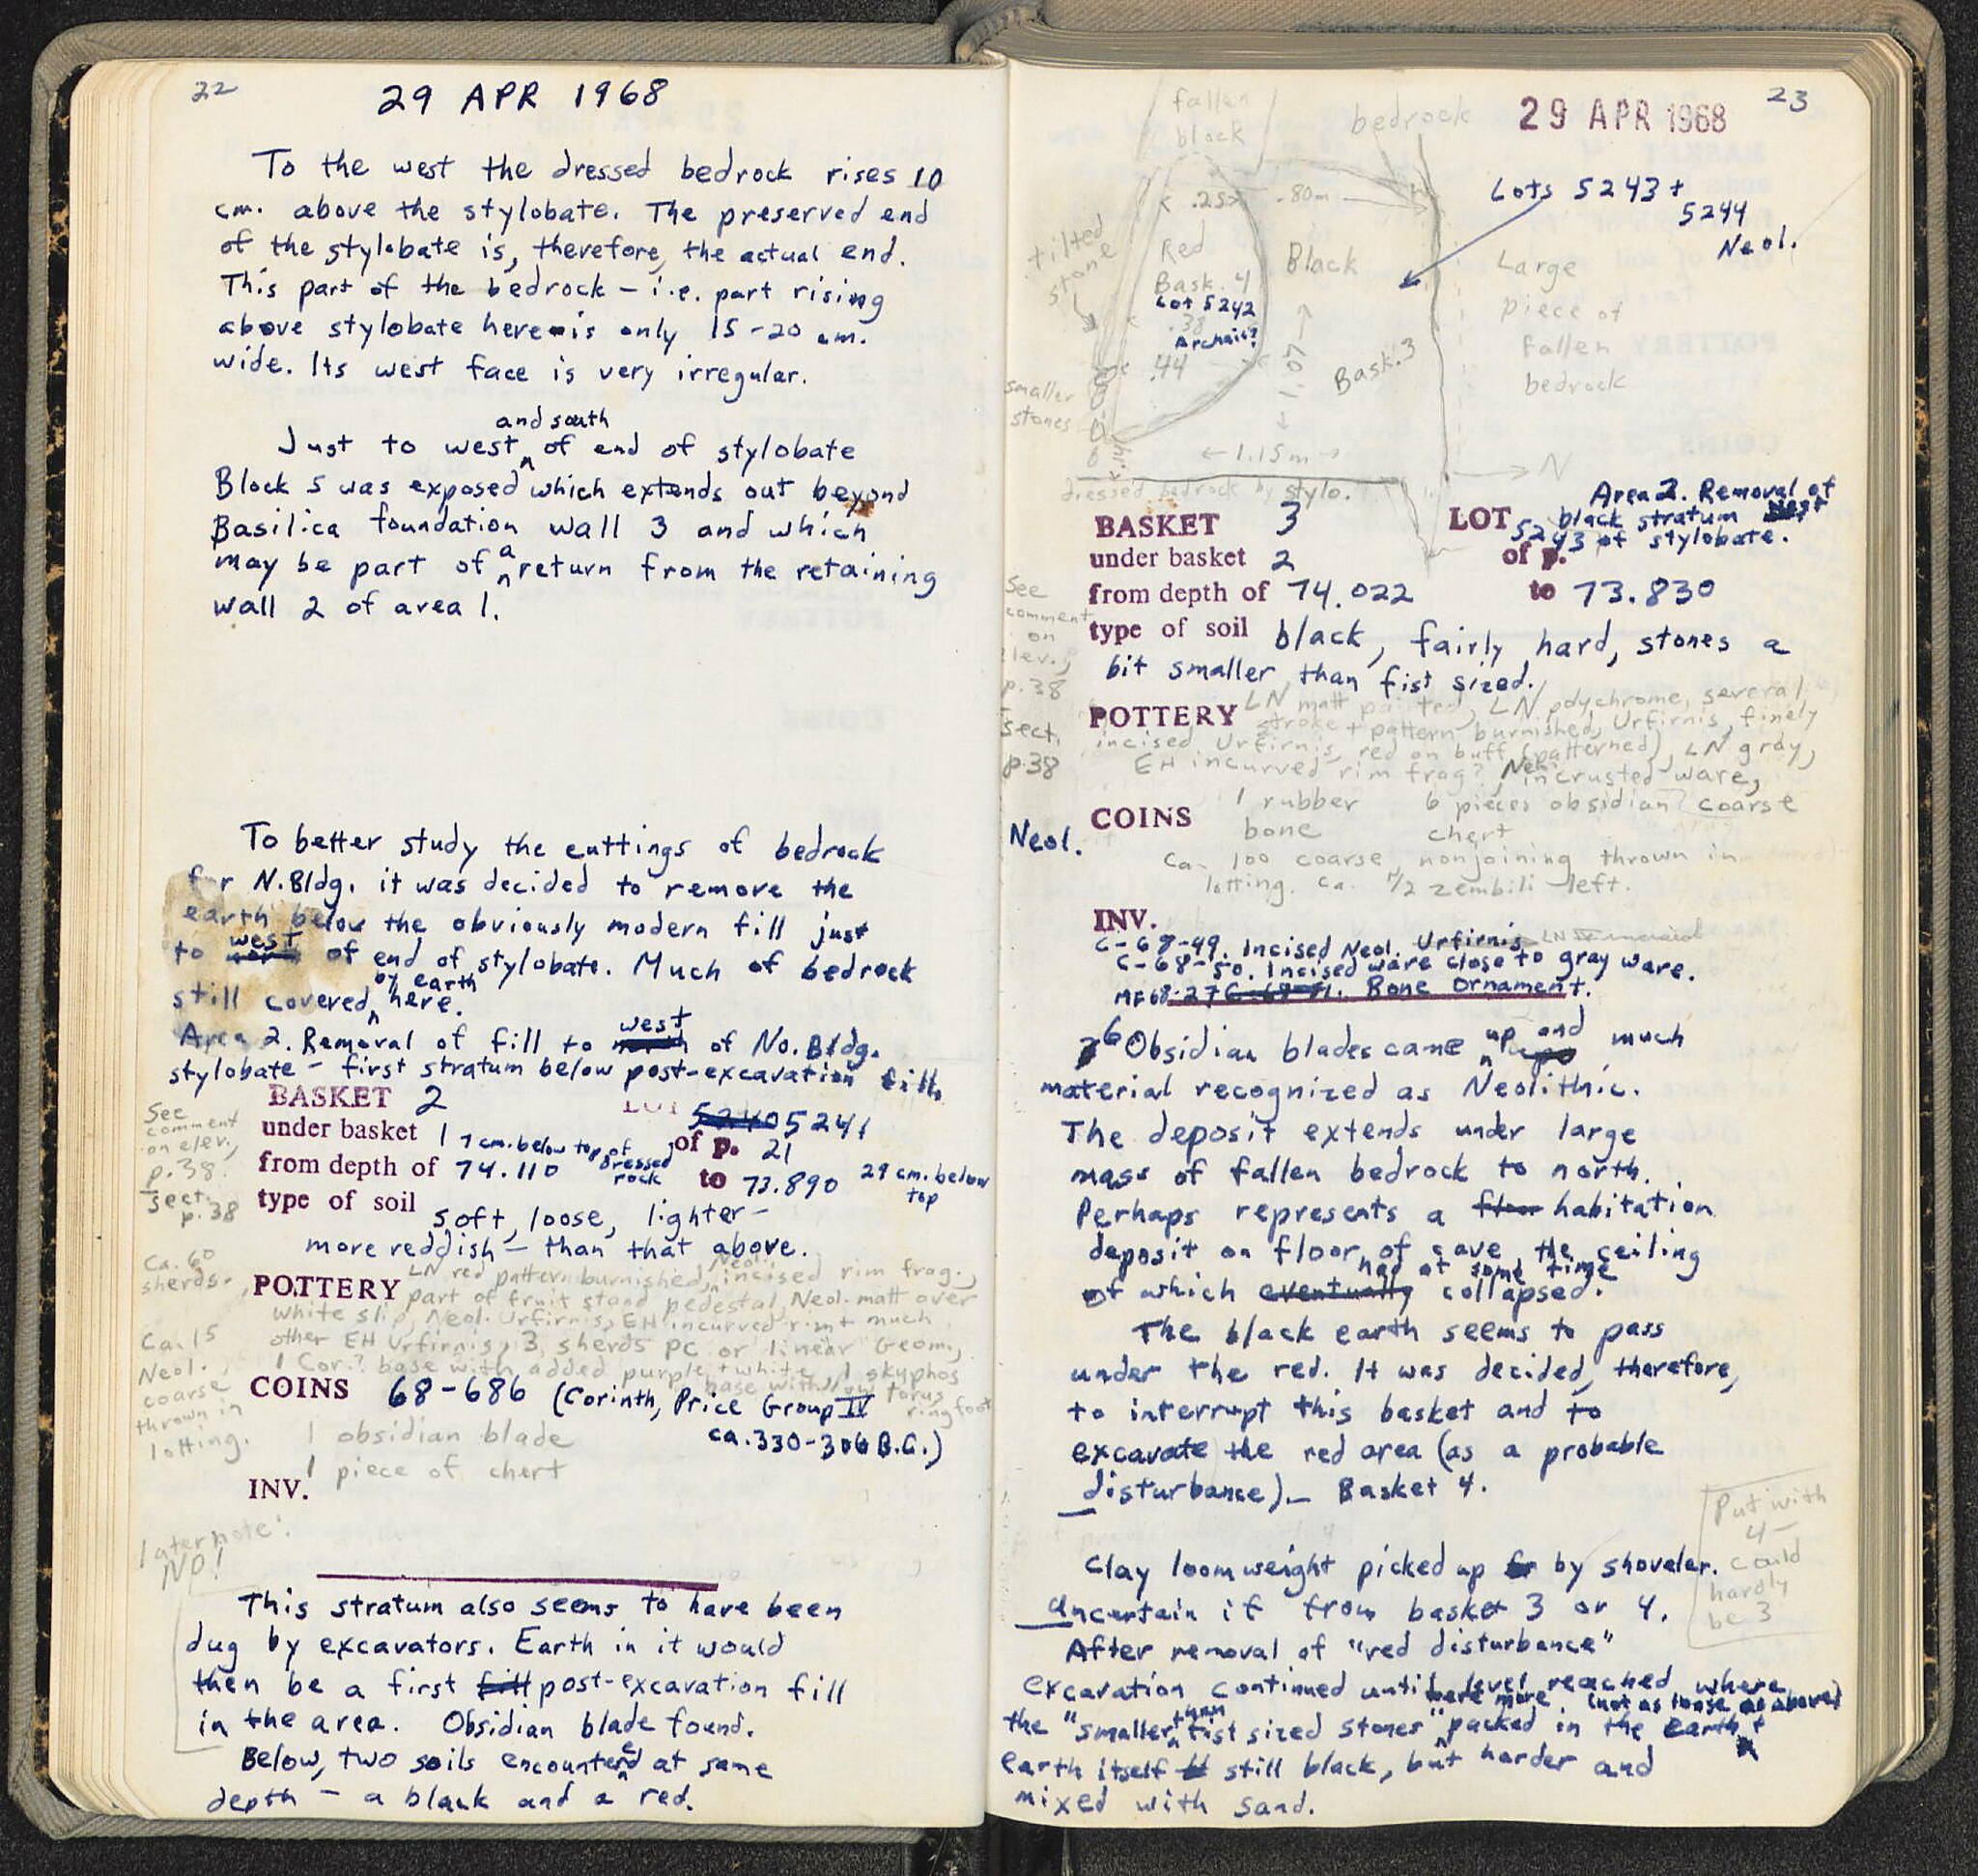 22
29 APR 1968
To the west the dressed bedrock rises 10
cm. above the stylobate. The preserved end
of the stylobate is, therefore, the actual end.
This part of the bedrock – i.e. part rising
above stylobate here – is only 15-20 cm.
wide. Its west face is very irregular.
and south
Just to west of end of stylobate
Block 5 was exposed which extends out beyond
Basilica foundation wall 3 and which
may be part of a return from the retaining
wall 2 of area 1.
To better study the cuttings of bedrock
for N. Bldg. it was decided to remove the
earth below the obviously modern fill just
to west of end of stylobate. Much of bedrock
still covered by earth here.
Area 2. Removal of fill to west of No. Bldg.
stylobate – first stratum below post-excavation fill.
BASKET 2
LOT 5240 5241
under basket 1
of p. 21
from depth of 74.110 7 cm. below top of dressed rock
to 73.890 29 cm. below top
type of soil soft, loose, lighter –
more reddish – than that above.
See
comment
on elev.,
p. 38.
Sect.
p. 38
Ca. 60
sherds.
Ca. 15
Neol.
coarse
thrown in
lotting.
POTTERY LN red pattern burnished, Neol. incised rim frag.,
part of fruit stand pedestal, Neol. matt over
white slip, Neol. Urfirnis, EH incurved rim + much
other EH Urfirnis, 3 sherds PC or linear Geom.,
1 Cor.? base with added purple + white, 1 skyphos
base with torus
ring foot
COINS 68-686 (Corinth, Price Group IV
ca. 330-306 B.C.)
1 obsidian blade
1 piece of chert
INV.
later note:
NO!
This stratum also seems to have been
dug by excavators. Earth in it would
then be a first fill post-excavation fill
in the area. Obsidian blade found.
Below, two soils encountered at same
depth – a black and a red.
23
29 APR 1968
fallen
block
bedrock
Lots 5243 +
5244
Neol.
.25
.80m
tilted
stone
Red
Bask. 4
Lot 5242
.38
Archaic?
.44
Black
1.07
Bask. 3
Large
piece of
fallen
bedrock
smaller
stones
1.15m
N
dressed bedrock by stylo.
BASKET 3
LOT 5243
Area 2. Removal of
black stratum west
of stylobate.
under basket 2
of p.
from depth of 74.022
to 73.830
type of soil black, fairly hard, stones a
bit smaller than fist sized.
See
comment
on
elev.,
p. 38
Sect.
p. 38
POTTERY LN matt painted, LN polychrome, several
stroke + pattern burnished, Urfirnis, finely
incised Urfirnis, red on buff (patterned), LN gray,
EH incurved rim frag?, Neol. incrusted ware,
coarse
COINS
1 rubber
6 pieces obsidian
bone
chert
Neol.
ca. 100 coarse, nonjoining thrown in
lotting. ca. 1/2 zembili left.
INV.
C-68-49. Incised Neol. Urfirnis
C-68-50. Incised ware close to gray ware.
MF 68-27 C-68-51. Bone Ornament.
6 Obsidian blades came up and much
material recognized as Neolithic.
The deposit extends under large
mass of fallen bedrock to north.
Perhaps represents a floor habitation
deposit on floor of cave, the ceiling
of which had at some time eventually collapsed.
The black earth seems to pass
under the red. It was decided, therefore,
to interrupt this basket and to
excavate the red area (as a probable
disturbance). – Basket 4.
Clay loomweight picked up by shoveler.
Uncertain if from basket 3 or 4.
Put with
4 –
could
hardly
be 3
After removal of "red disturbance"
excavation continued until level reached where
the "smaller than fist sized stones" were more packed in the earth (not as loose as above)
earth itself still black, but harder and
mixed with sand.